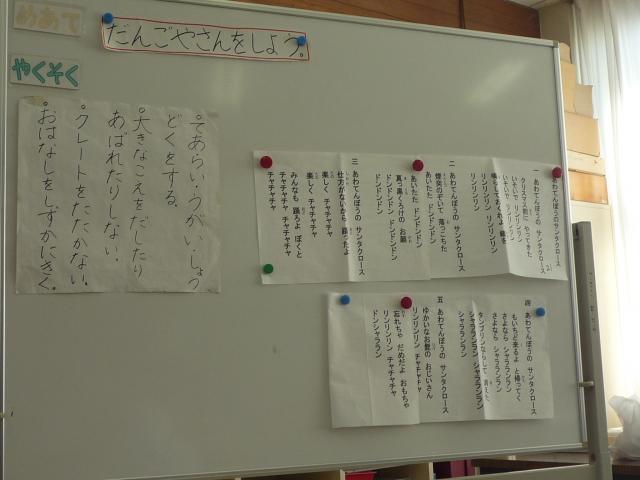 めあて
だんごやさんをしよう。
やくそく
○てあらい・うがい・しょうどくをする。
○大きなこえをだしたり
あばれたりしない。
○クレートをたたかない。
○おはなしをしずかにきく。
あわてんぼうのサンタクロース
一 あわてんぼうの サンタクロース
クリスマス前に やってきた
いそいで リンリンリン
いそいで リンリンリン
鳴らしておくれよ 鐘を
リンリンリン リンリンリン
リンリンリン
二 あわてんぼうの サンタクロース
煙突のぞいて 落っこちた
あいたた ドンドンドン
あいたた ドンドンドン
真っ黒くろけの お顔
ドンドンドン ドンドンドン
ドンドンドン
三 あわてんぼうの サンタクロース
仕方がないから 踊ったよ
楽しく チャチャチャ
楽しく チャチャチャ
みんなも 踊ろよ ぼくと
チャチャチャ チャチャチャ
チャチャチャ
四 あわてんぼうの サンタクロース
もいちど来るよ と帰ってく
さよなら シャラランラン
さよなら シャラランラン
タンブリンならして 消えた
シャラランラン シャラランラン
シャラランラン
五 あわてんぼうの サンタクロース
ゆかいなお髭の おじいさん
リンリンリン チャチャチャ
忘れちゃ だめだよ おもちゃ
リンリンリン チャチャチャ
ドンシャララン